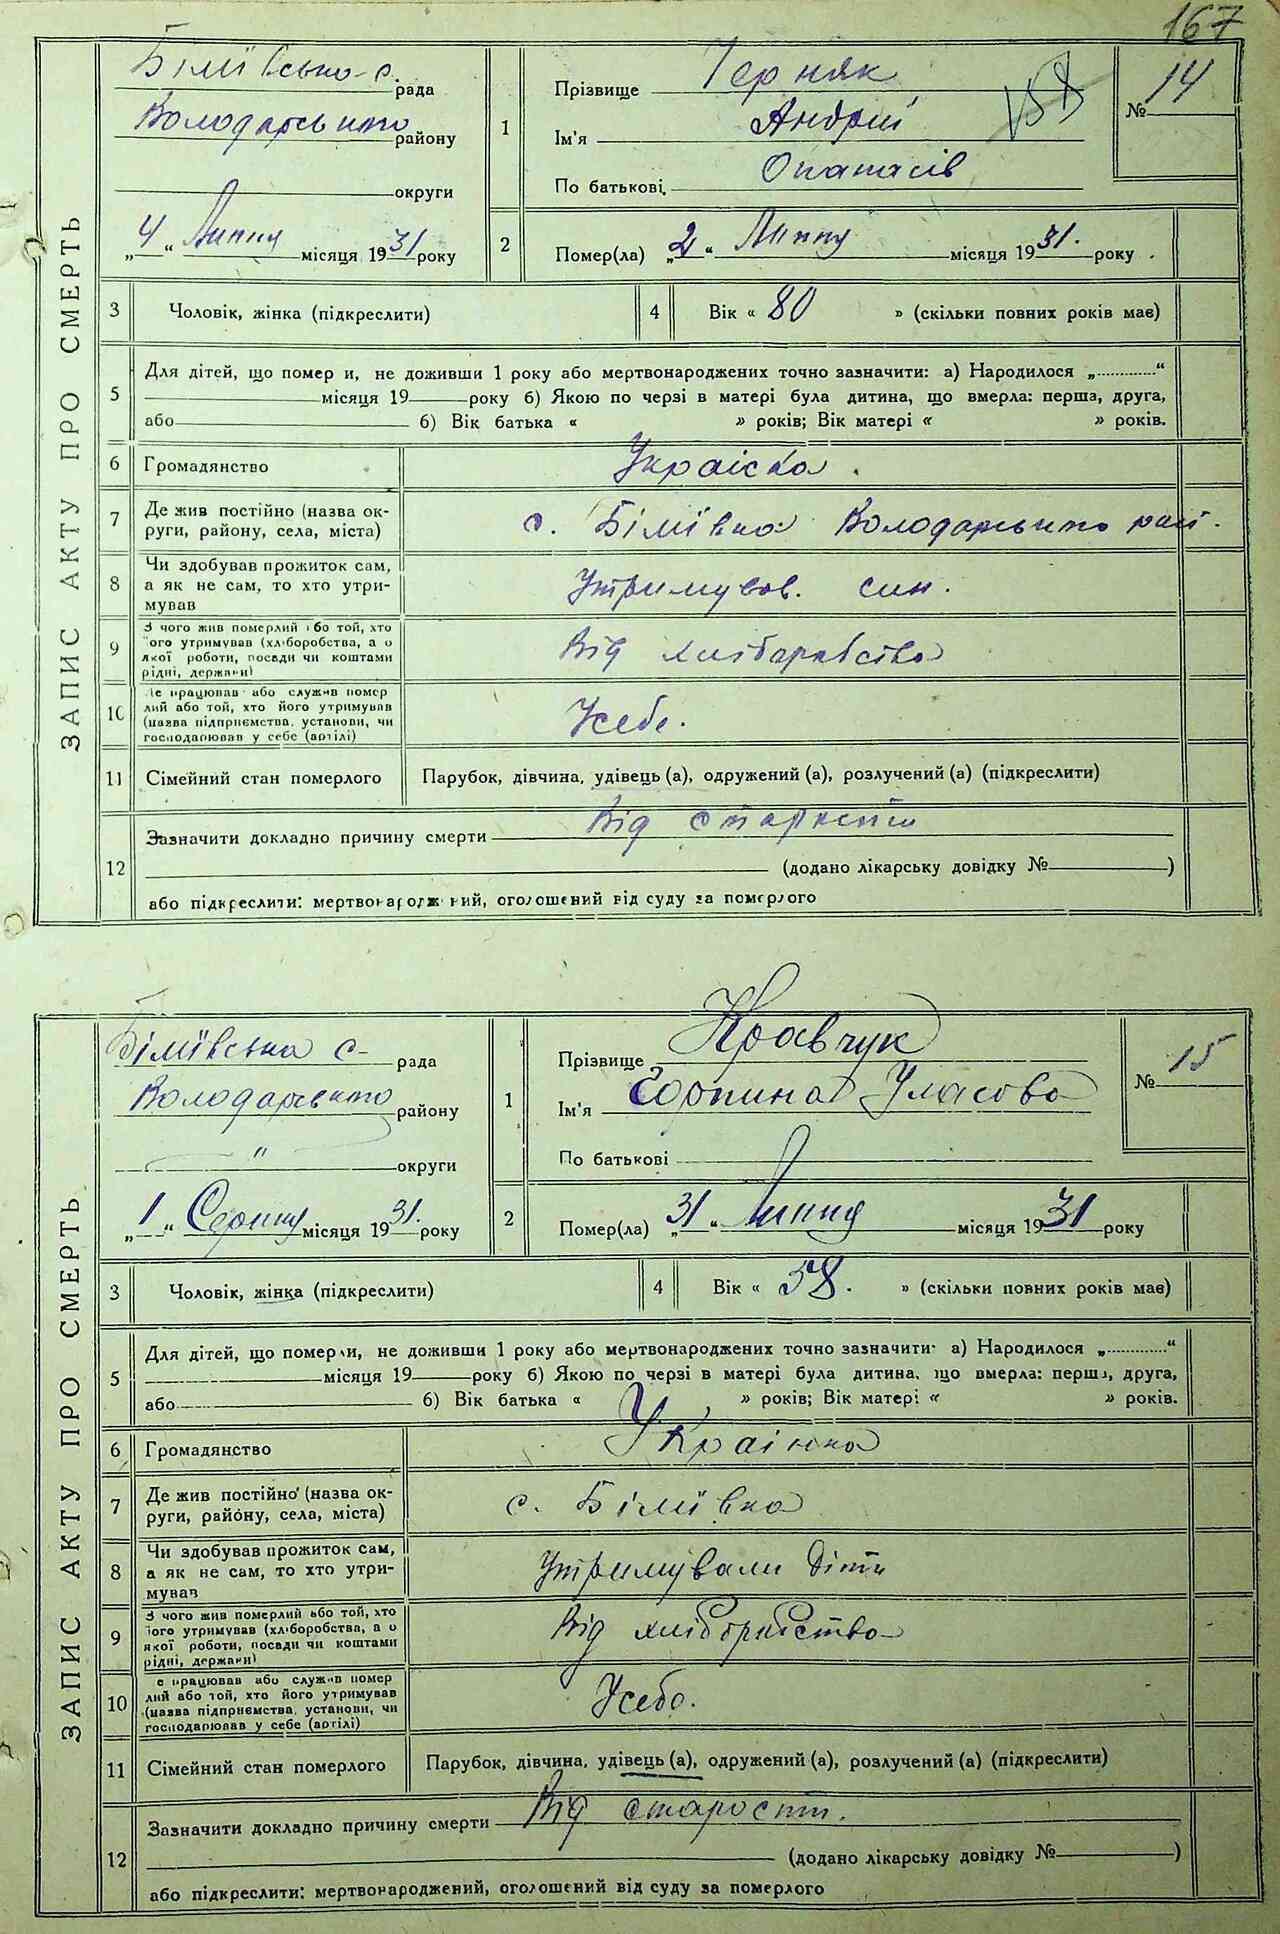 167
ЗАПИС АКТУ ПРО СМЕРТЬ
Біліївська с. рада
Володарського району
округи
„4“ Липня місяця 1931 року
1 Прізвище Черняк
Ім'я Андрій
По батькові Опанасів
№ 14
2 Помер(ла) „2“ Липня місяця 1931. року
3 Чоловік, жінка (підкреслити)
4 Вік « 80 » (скільки повних років має)
5 Для дітей, що помер и, не доживши 1 року або мертвонароджених точно зазначити: а) Народилося „............“
місяця 19 року б) Якою по черзі в матері була дитина, що вмерла: перша, друга,
або б) Вік батька « » років; Вік матері « » років.
6 Громадянство
7 Де жив постійно (назва ок-
руги, району, села, міста)
с. Біліївка Володарського рай.
8 Чи здобував прожиток сам,
а як не сам, то хто утри-
мував
Утримував. син.
9 З чого жив померлий або той, хто
його утримував (хліборобства, а о
якої роботи, посади чи коштами
рідні, держави)
Від хліборобства
10 Де працював або служив помер
лий або той, хто його утримував
(назва підприємства, установи, чи
господарював у себе (артілі)
Усебе.
11 Сімейний стан померлого Парубок, дівчина, удівець (а), одружений (а), розлучений (а) (підкреслити)
12 Зазначити докладно причину смерти Від старости
(додано лікарську довідку № )
або підкреслити: мертвонароджений, оголошений від суду за померлого
ЗАПИС АКТУ ПРО СМЕРТЬ
Біліївська с- рада
Володарського району
" округи
„1“ Серпня місяця 1931. року
1 Прізвище Кравчук
Ім'я Горпина Уласова
По батькові
№ 15
2 Помер(ла) „31“ Липня місяця 1931 року
3 Чоловік, жінка (підкреслити)
4 Вік « 58. » (скільки повних років має)
5 Для дітей, що померли, не доживши 1 року або мертвонароджених точно зазначити: а) Народилося „............“
місяця 19 року б) Якою по черзі в матері була дитина, що вмерла: перша, друга,
або б) Вік батька « » років; Вік матері « » років.
6 Громадянство Українка
7 Де жив постійно (назва ок-
руги, району, села, міста)
с. Біліївка
8 Чи здобував прожиток сам,
а як не сам, то хто утри-
мував
Утримували діти
9 З чого жив померлий або той, хто
його утримував (хліборобства, а о
якої роботи, посади чи коштами
рідні, держави)
Від хліборобства
10 е працював або служив помер
лий або той, хто його утримував
(назва підприємства, установи, чи
господарював у себе (артілі)
Усебе.
11 Сімейний стан померлого Парубок, дівчина, удівець (а), одружений (а), розлучений (а) (підкреслити)
12 Зазначити докладно причину смерти Від старости.
(додано лікарську довідку № )
або підкреслити: мертвонароджений, оголошений від суду за померлого